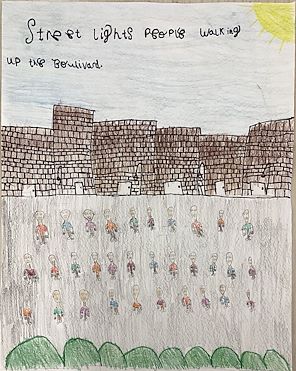 Street lights PEOPLE walking
UP the Boulivard.